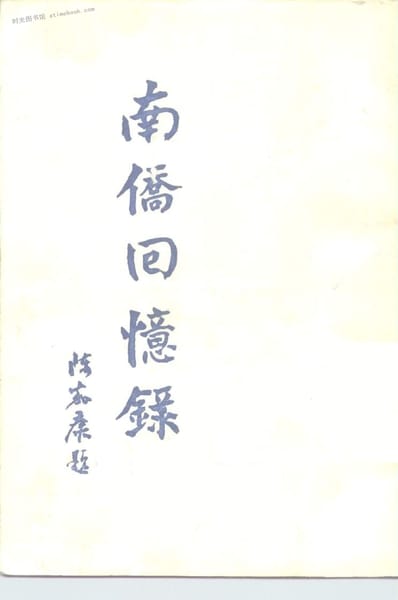 时光图书馆
南僑回憶錄
陳嘉庚題